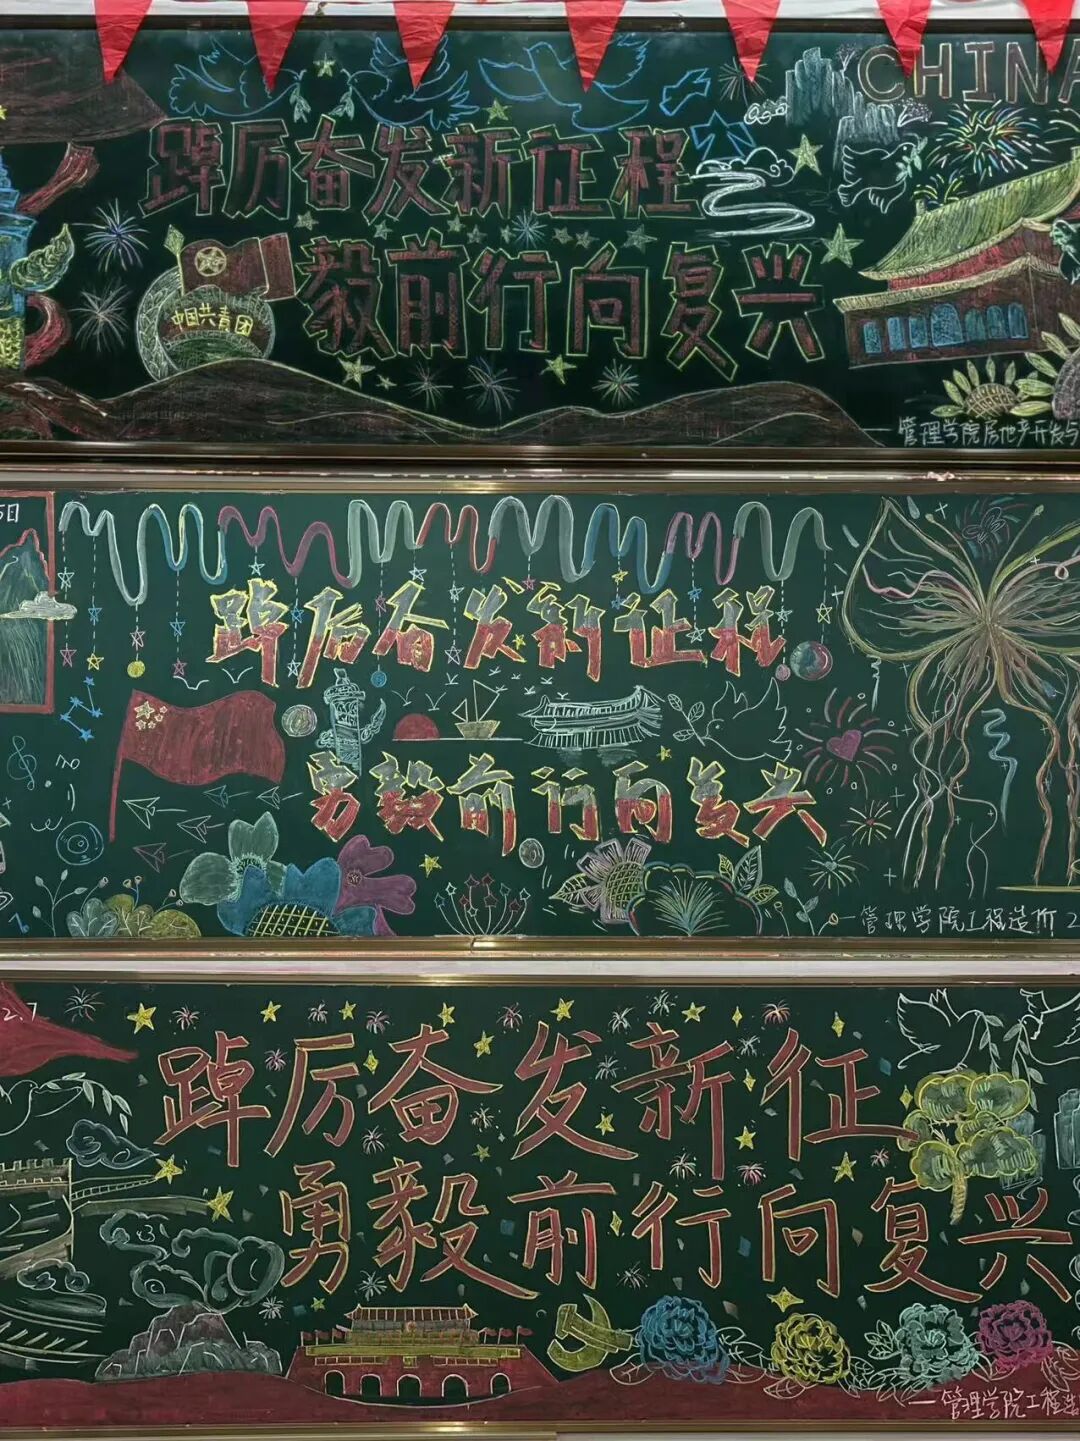 CHINA
踔厉奋发新征程
毅前行向复兴
中国共青团
管理学院房地产开发与
5日
踔厉奋发新征程
勇毅前行向复兴
一管理学院工程造价2
2.7
踔厉奋发新征
勇毅前行向复兴
一管理学院工程造